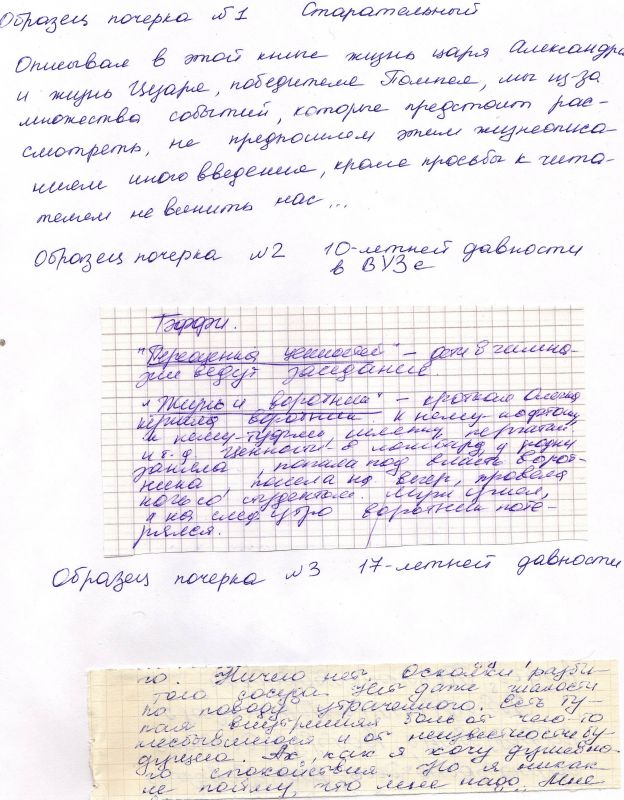 Образец почерка №1 Старательный
Описывая в этой книге жизнь царя Александра
и жизнь Цезаря, победителя Помпея, мы из-за
множества событий, которые предстоит рас-
смотреть, не предпошлем этим жизнеописа-
ниям иного введения, кроме просьбы к чита-
телям не винить нас...
Образец почерка №2 10-летней давности
в ВУЗе
Тэффи.
"Переоценка ценностей" – дети в гимна-
зии ведут заседание.
"Жизнь и воротник" – кроткая Олечка
купила воротник к нему кофточку
и к нему туфли, шляпку, перчатки
и т.д. Ценности в ломбард, у родных
заняла, попала под власть ворот-
ника, пошла на вечер, провела
ночь со студентом. Муж ушел,
а на след. утро воротник поте-
рялся.
Образец почерка №3 17-летней давности
го. Ничего нет. Осколки разби-
того сосуда. Нет даже жалости
по поводу утраченного. Есть ту-
пая внутренняя боль от чего-то
несбывшегося и от неизвестности бу-
дущего. Ах, как я хочу душевно-
го спокойствия. Но я никак
не пойму, что мне надо. Мне